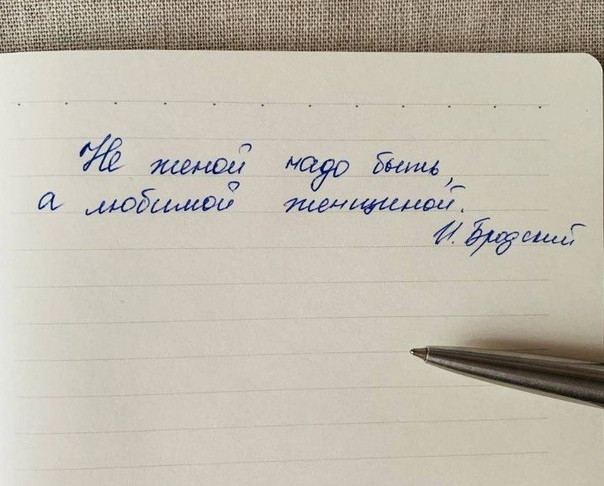 Не женой надо быть,
а любимой женщиной.
И. Бродский